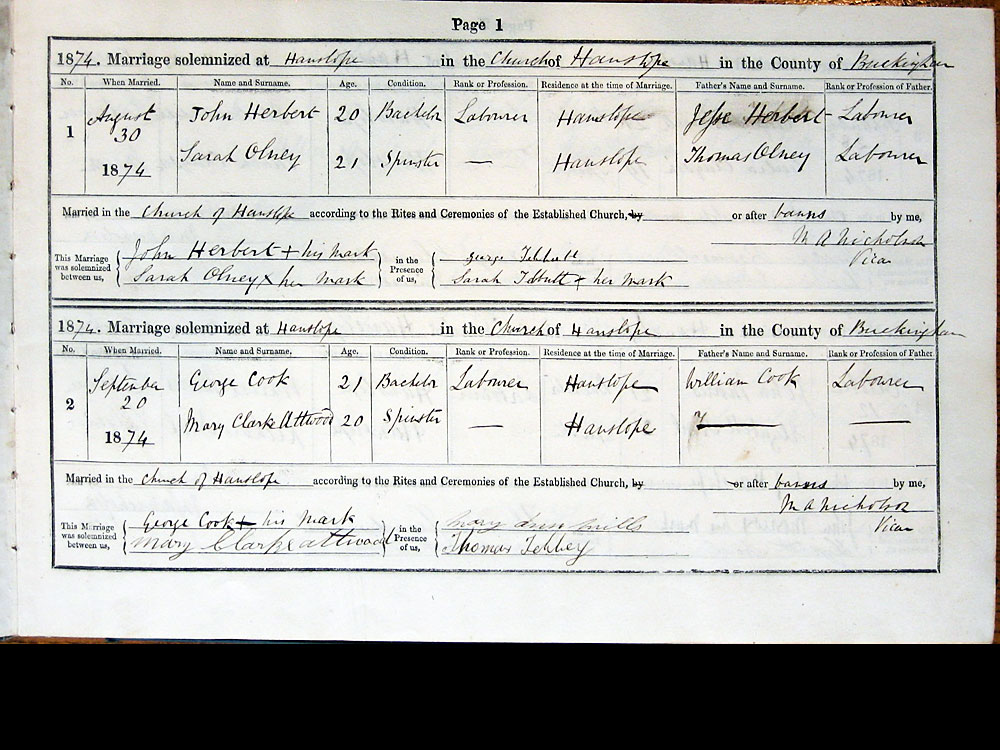 Page 1
1874. Marriage solemnized at Hanslope in the Church of Hanslope in the County of Buckingham
No. When Married. Name and Surname. Age. Condition. Rank or Profession. Residence at the time of Marriage. Father's Name and Surname. Rank or Profession of Father.
1 August 30 1874 John Herbert 20 Bachelor Labourer Hanslope Jesse Herbert Labourer
Sarah Olney 21 Spinster — Hanslope Thomas Olney Labourer
Married in the Church of Hanslope according to the Rites and Ceremonies of the Established Church, by or after banns by me,
M A Nicholson
Vicar
This Marriage was solemnized between us, John Herbert + his mark in the Presence of us, George Tebbutt
Sarah Olney x her mark Sarah Tebbutt + her mark
1874. Marriage solemnized at Hanslope in the Church of Hanslope in the County of Buckingham
No. When Married. Name and Surname. Age. Condition. Rank or Profession. Residence at the time of Marriage. Father's Name and Surname. Rank or Profession of Father.
2 September 20 1874 George Cook 21 Bachelor Labourer Hanslope William Cook Labourer
Mary Clarke Attwood 20 Spinster — Hanslope — —
Married in the Church of Hanslope according to the Rites and Ceremonies of the Established Church, by or after banns by me,
M A Nicholson
Vicar
This Marriage was solemnized between us, George Cook + his mark in the Presence of us, Mary Ann Mills
Mary Clarke Attwood Thomas Tebbey